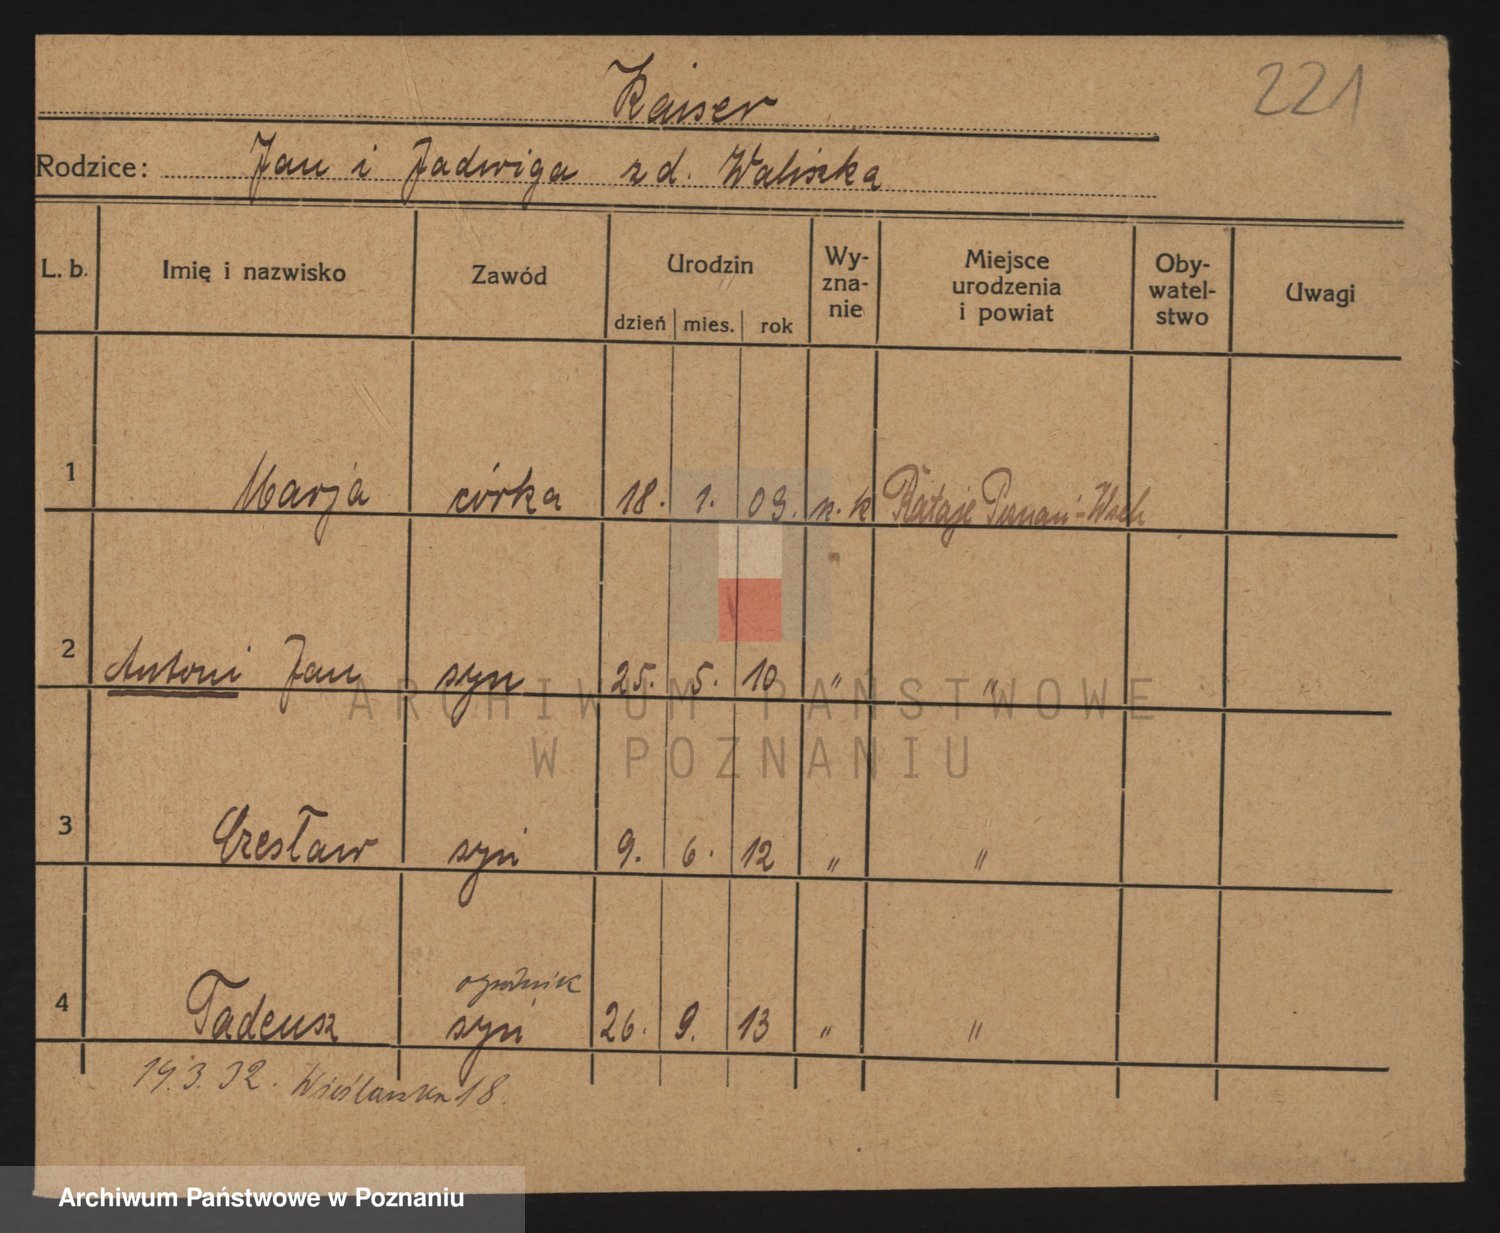 221
Kaiser
Rodzice: Jan i Jadwiga zd. Waliszka
L. b. Imię i nazwisko Zawód Urodzin Wy-zna-nie Miejsce urodzenia i powiat Oby-watel-stwo Uwagi
dzień mies. rok
1 Marja córka 18. 1. 09. r. k Rataje Poznań-Wsch
2 Antoni Jan syn 25. 5. 10 " "
3 Czesław syn 9. 6. 12 " "
ogrodnik
4 Tadeusz syn 26. 9. 13 " "
19.3.32. Wioślarska 18.
ARCHIWUM PAŃSTWOWE
W POZNANIU
Archiwum Państwowe w Poznaniu